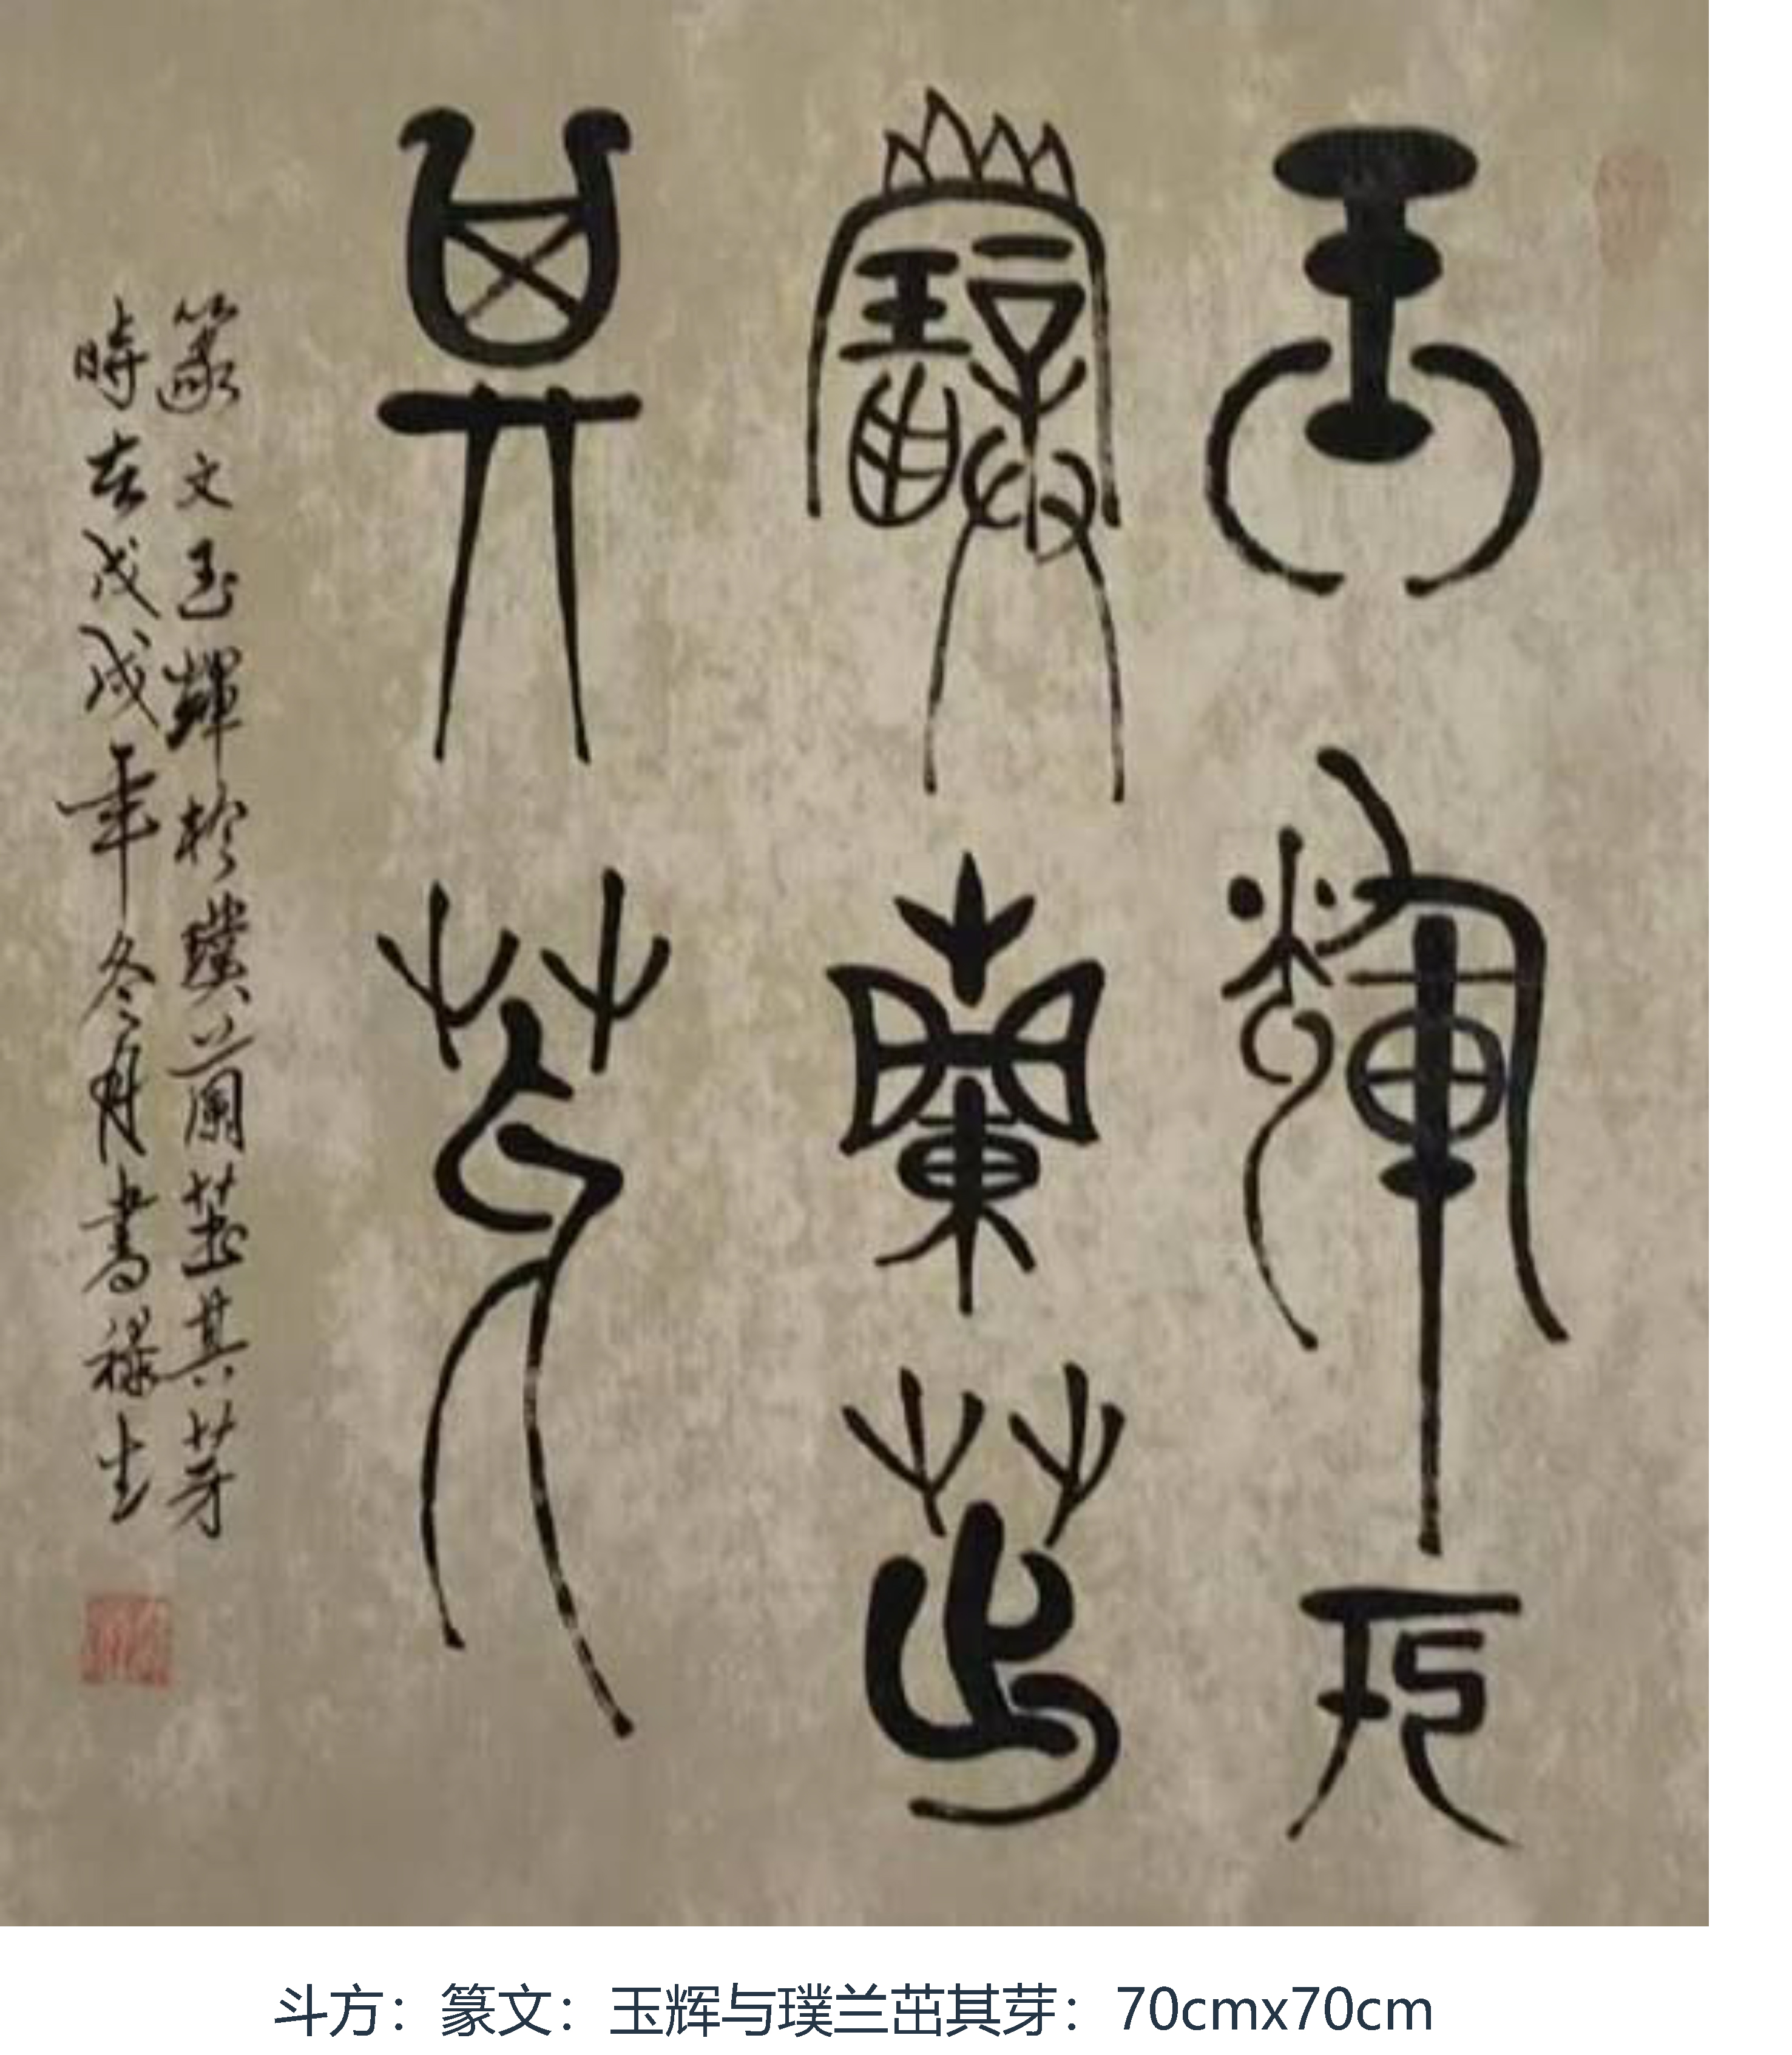 玉輝於
璞蘭茁
其芽
篆文玉輝於璞蘭茁其芽
時在戊戌年冬月書禄生
斗方：篆文：玉辉与璞兰茁其芽：70cmx70cm